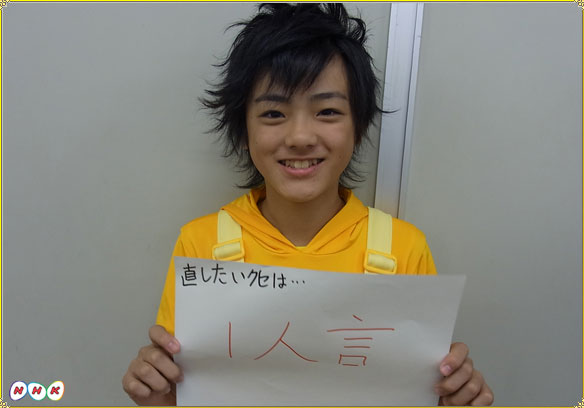 直したいクセは…
1人言
NHK